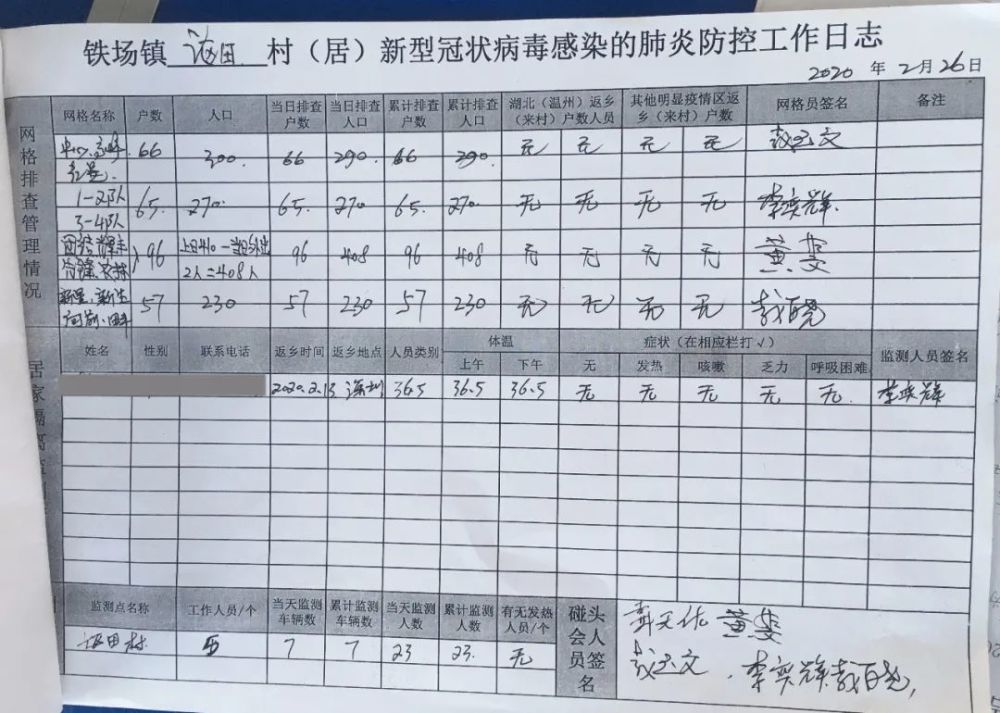 铁场镇 村（居）新型冠状病毒感染的肺炎防控工作日志
2020 年 2 月 26 日
网格排查管理情况
网格名称 户数 人口 当日排查户数 当日排查人口 累计排查户数 累计排查人口 湖北（温州）返乡（来村）户数人员 其他明显疫情区返乡（来村）户数 网格员签名 备注
66 300. 66 290. 66 290. 无 无 无 无
1-2队 3-4队 65. 270. 65. 270 65. 270. 无 无 无 无 李奕辉
96 上日410一当日外出2人=408人 96 408 96 408 无 无 无 无 黄
57 230 57 230 57 230 无 无 无 无
居家隔离
姓名 性别 联系电话 返乡时间 返乡地点 人员类别 体温 上午 下午 症状（在相应栏打√） 无 发热 咳嗽 乏力 呼吸困难 监测人员签名
2020.2.13 深圳 36.5 36.5 36.5 无 无 无 无 无. 李奕辉
监测点名称 工作人员/个 当天监测车辆数 累计监测车辆数 当天监测人数 累计监测人数 有无发热人员/个 碰头会人员签名
田村 5 7 7 23 23. 无
黄
李奕辉